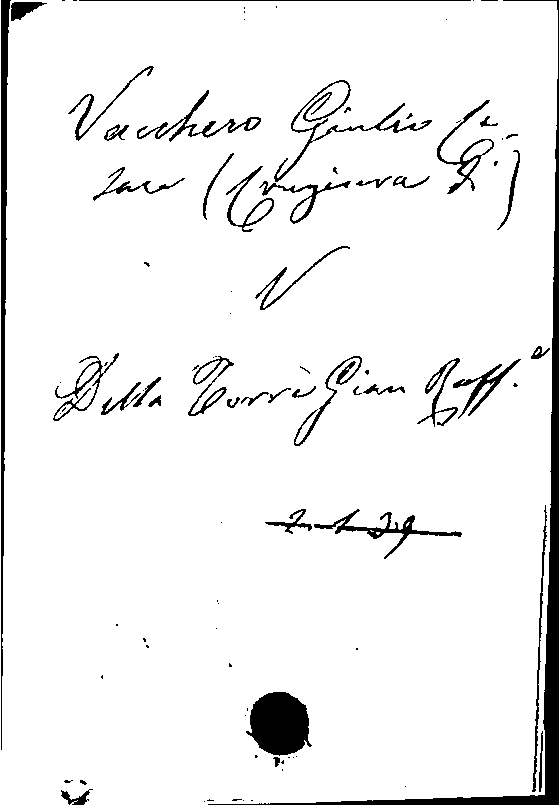 Vacchero Giulio Ce-
sare (Congiura d.)
V
Della Torre Gian Raff.e